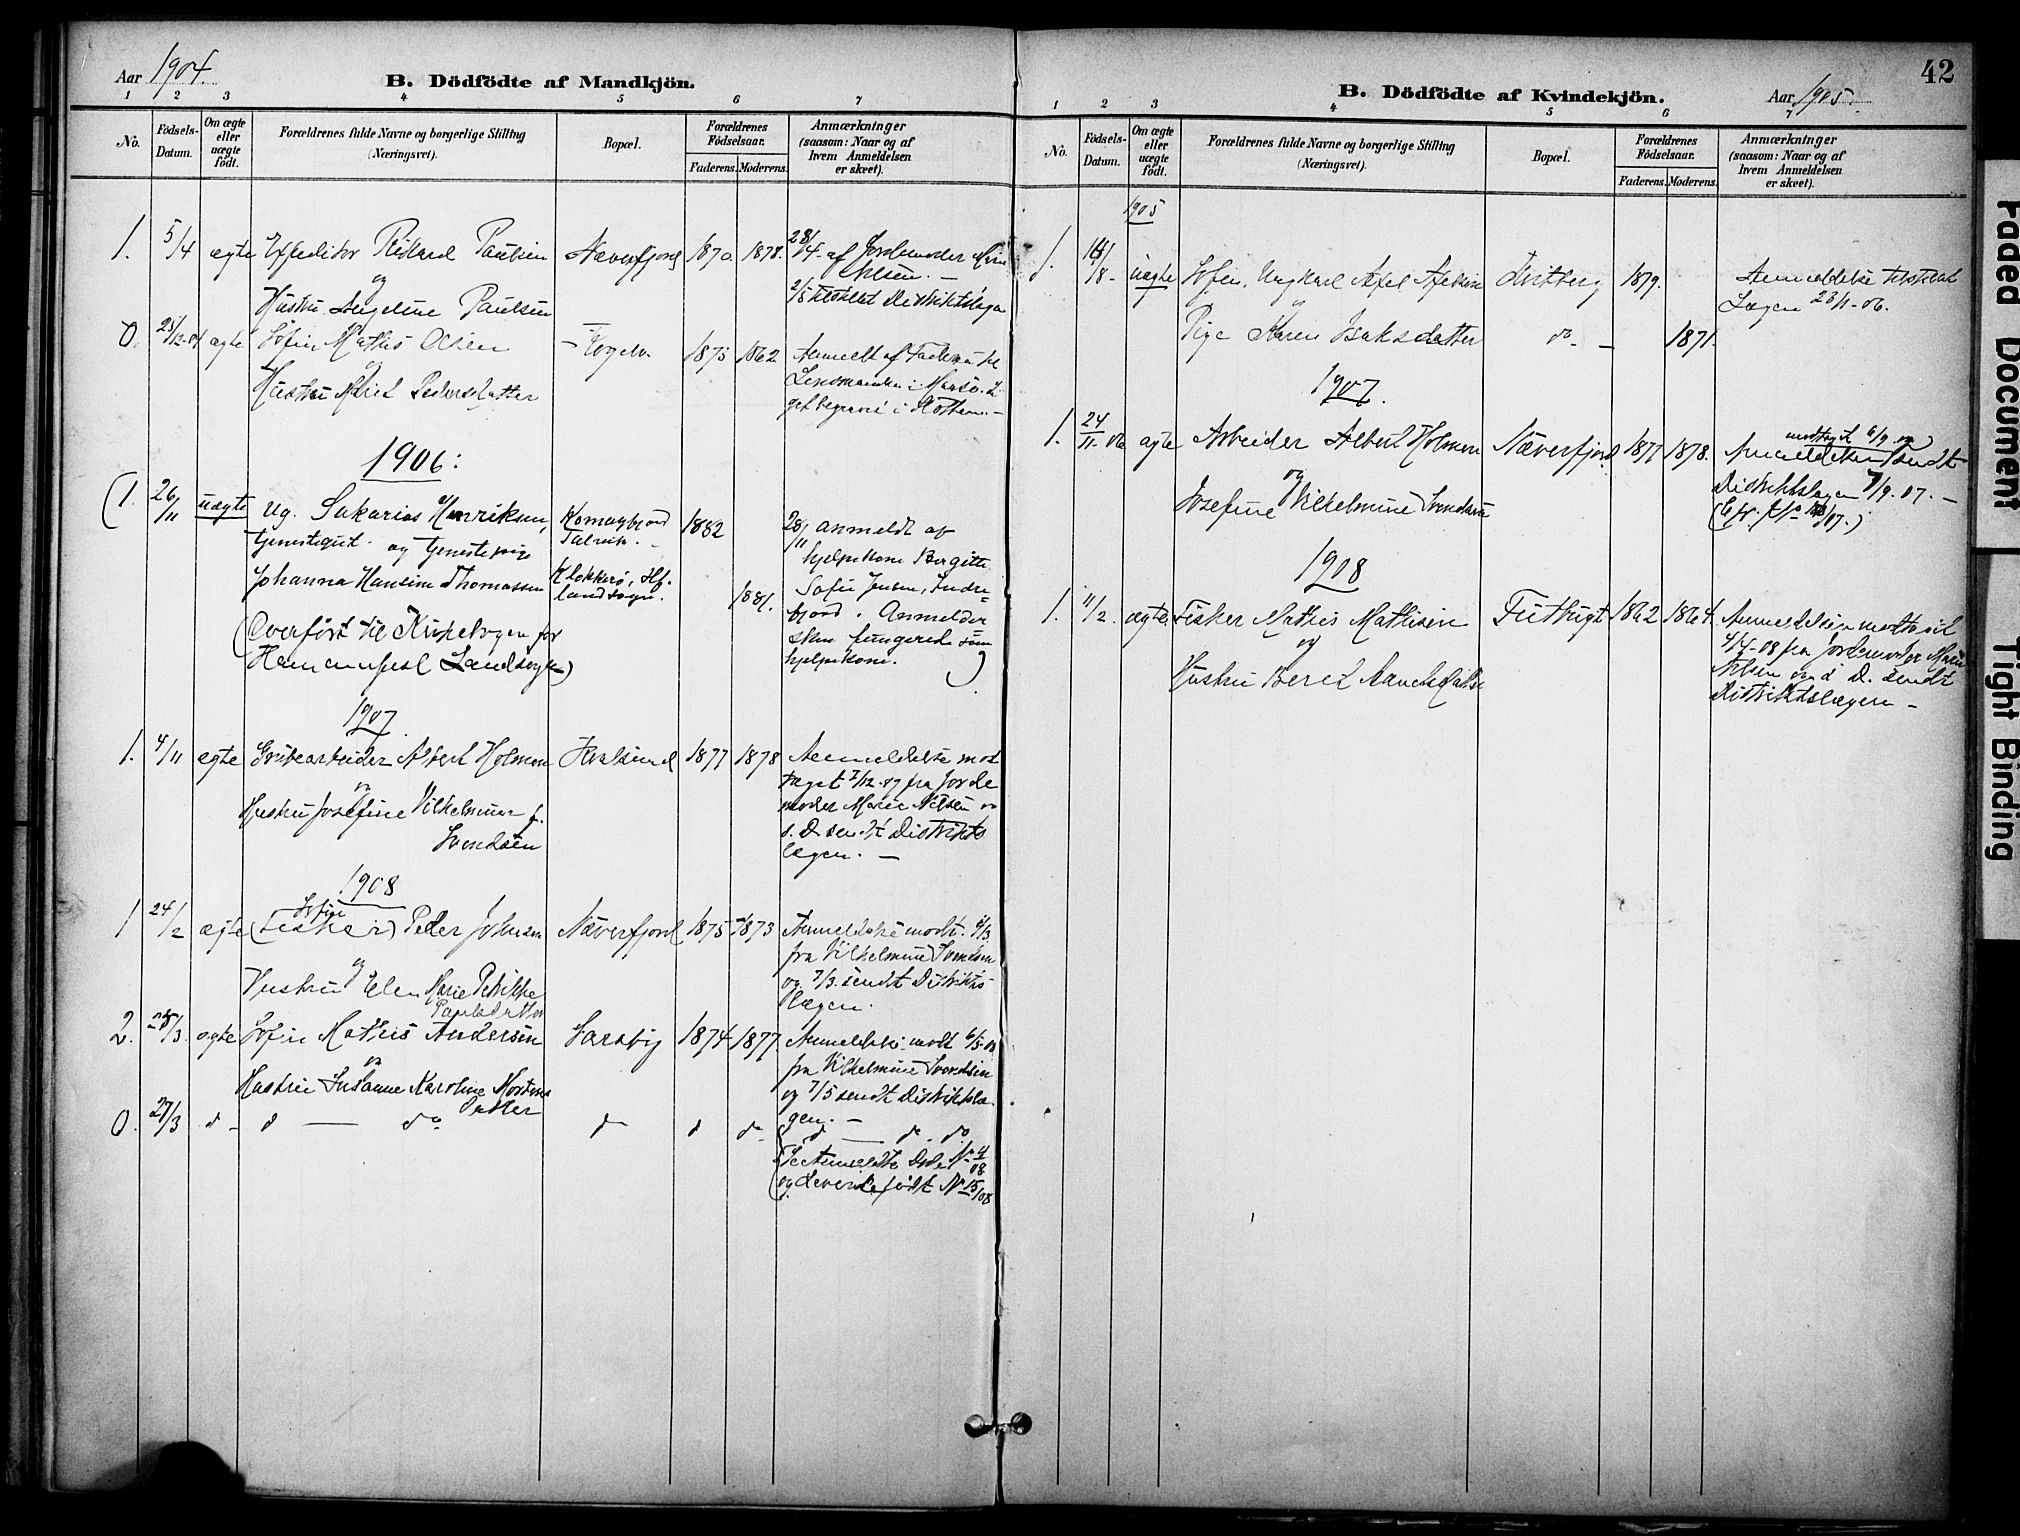 Aar 1904.
B. Dödfödte af Mandkjön.
1 2 3 4 5 6 7
No.
Födsels-
Datum.
Om ægte
eller
uægte
födt.
Forældrenes fulde Navne og borgerlige Stilling
(Næringsvei).
Bopæl.
Forældrenes
Födselsaar.
Faderens. Moderens.
Anmærkninger
(saasom: Naar og af
hvem Anmeldelsen
er skeet).
1. 5/4 ægte Expeditør Rikard Paulsen Næverfjord 1870. 1878. 28/4 af Jordemoder
og
Hustru Angeline Paulsen
2/5 tilstillet Distriktslægen
0. 25/12-04 ægte Søfin Mathis Olsen 1875 1862 Anmeldt af Faderen til
Hustru Marit Pedersdatter
Lensmanden i
1906:
(1. 26/11 uægte Ug. Sakarias Henriksen, Komagfjord 1882 28/11 anmeldt af
tjenestegut. og tjenestepige Talvik. hjelpekone Bergitte
Johanna Hansine Thomassen Klokkerø, Hf. landsogn. 1881. Sofie Jensen, Indre-
fjord. Anmelder
(Overført til Kirkebogen for
Hammerfest Landsogn)
sken fungered som
hjelpekone. )
1907
1. 4/11 ægte Grubearbeider Albert Holmen Kvalsund 1877 1878 Anmeldelse mod
og
taget 7/12.07 fra Jorde
Hustru Josefine Vilhelmine f.
moder Marie Nilsen
Svendsen
s. D. sendt Distrikts
lægen. —
1908
1 24/2 ægte (Fisker) Peder Johnsen Næverfjord 1875 1873 Anmeldelse modt. 6/3.
fra Vilhelmine Svendsen
og
Hustru Elen Marie
og 7/3. sendt Distrikts-
lægen.
2. 25/3. ægte Søfin Mathis Andersen 1874 1877. Anmeldelse modt 6/5-08
og
fra Vilhelmine Svendsen
Hustru Susanne Karoline Mortens
datter
og 7/5 sendt Distriktslæ-
gen. —
0. 27/3 d - d — do d d do d — do. do
(Se Anmeldte Døde No 4/08
og levende født No 15/08
42
B. Dödfödte af Kvindekjön.
Aar 1905.
1 2 3 4 5 6 7
No.
Födsels-
Datum.
Om ægte
eller
uægte
födt.
Forældrenes fulde Navne og borgerlige Stilling
(Næringsvei).
Bopæl.
Forældrenes
Födselsaar.
Faderens. Moderens.
Anmærkninger
(saasom: Naar og af
hvem Anmeldelsen
er skeet).
1905
1. /8- uægte Søfin, Ungkarl Axel 1879. Anmeldelse tilstillet
og
Lægen 23/1-06.
Pige Karen Isaksdatter do - 1871.
1907.
1. 24/11-06 ægte Arbeider Albert Holmen Næverfjord 1877 1878. modtaget 6/9
Anmeldelsen sendt
og
Distriktslægen 7/9.07. —
Josefine Vilhelmine Svendsen
1908
1. 11/2. ægte Fisker Mathis Mathisen 1862 1864. Anmeldelse modtaget
og
4/4-08 fra Jordemoder Marie
Hustru Beret
Nilsen s. D. sendt
Distriktslægen —
Faded Document
Tight Binding